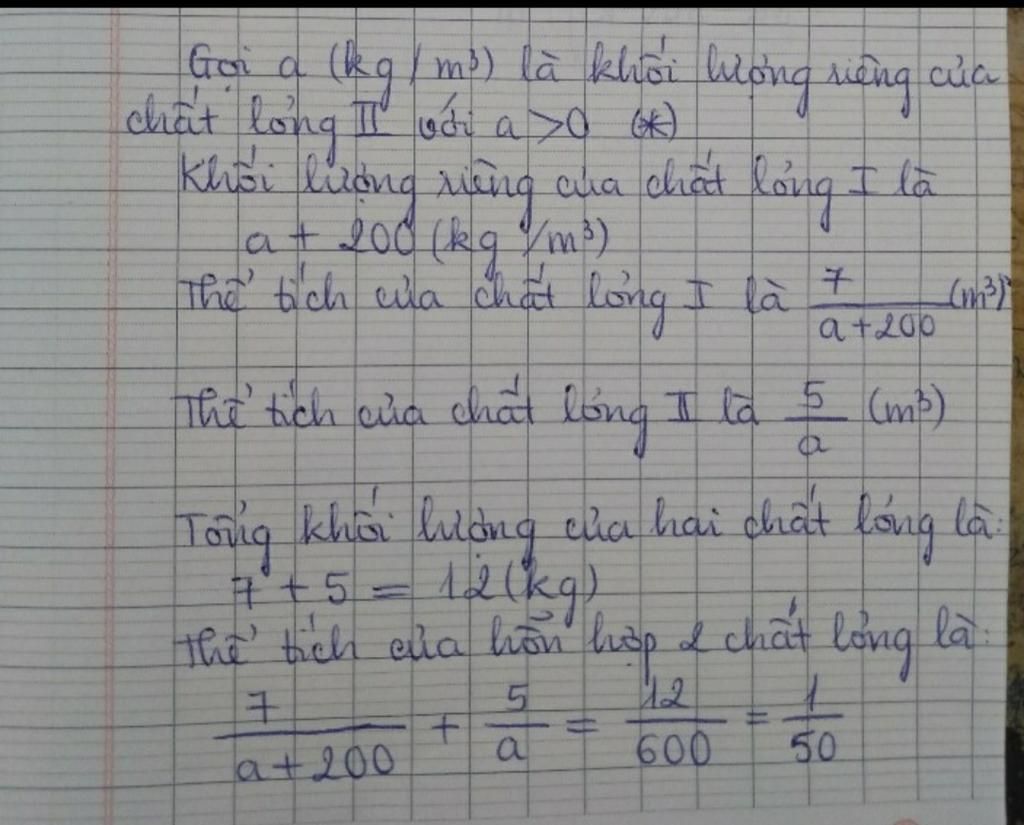 Gọi a (kg/m³) là khối lượng riêng của
chất lỏng II với a > 0 (*)
Khối lượng riêng của chất lỏng I là
a + 200 (kg/m³)
Thể tích của chất lỏng I là 7/(a+200) (m³)
Thể tích của chất lỏng II là 5/a (m³)
Tổng khối lượng của hai chất lỏng là:
7 + 5 = 12 (kg)
Thể tích của hỗn hợp 2 chất lỏng là:
7/(a+200) + 5/a = 12/600 = 1/50